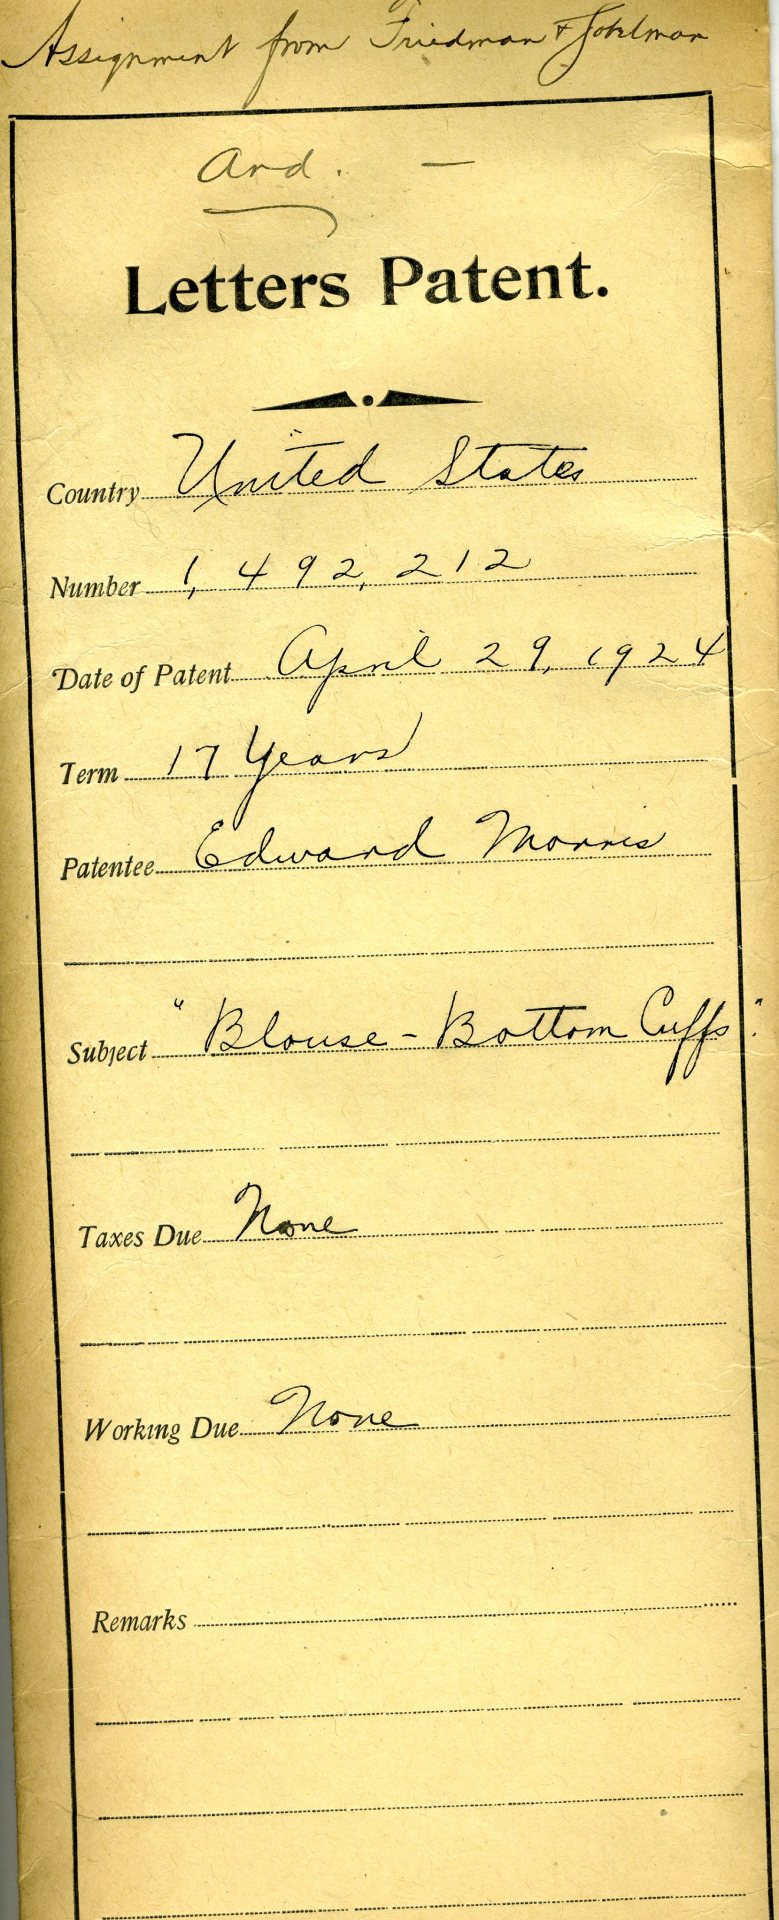 Assignment from Friedman &
And. —
Letters Patent.
Country United States
Number 1,492,212
Date of Patent April 29, 1924
Term 17 Years
Patentee Edward Morris
Subject "Blouse-Bottom Cuffs".
Taxes Due None
Working Due None
Remarks